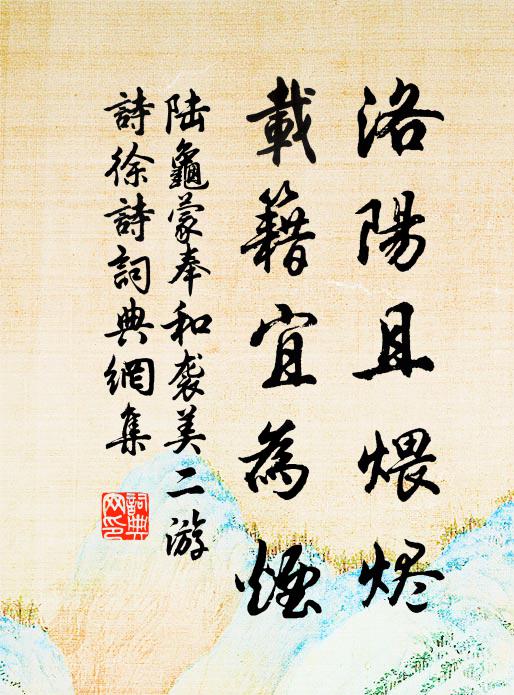 洛陽且煨烬
載籍宜為煙
陆龜蒙奉和袭美二游
詩徐詩詞典網集
詞典網印